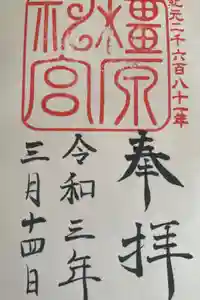 紀元二千六百八十一年
橿原神宮
奉拝
令和三年
三月十四日